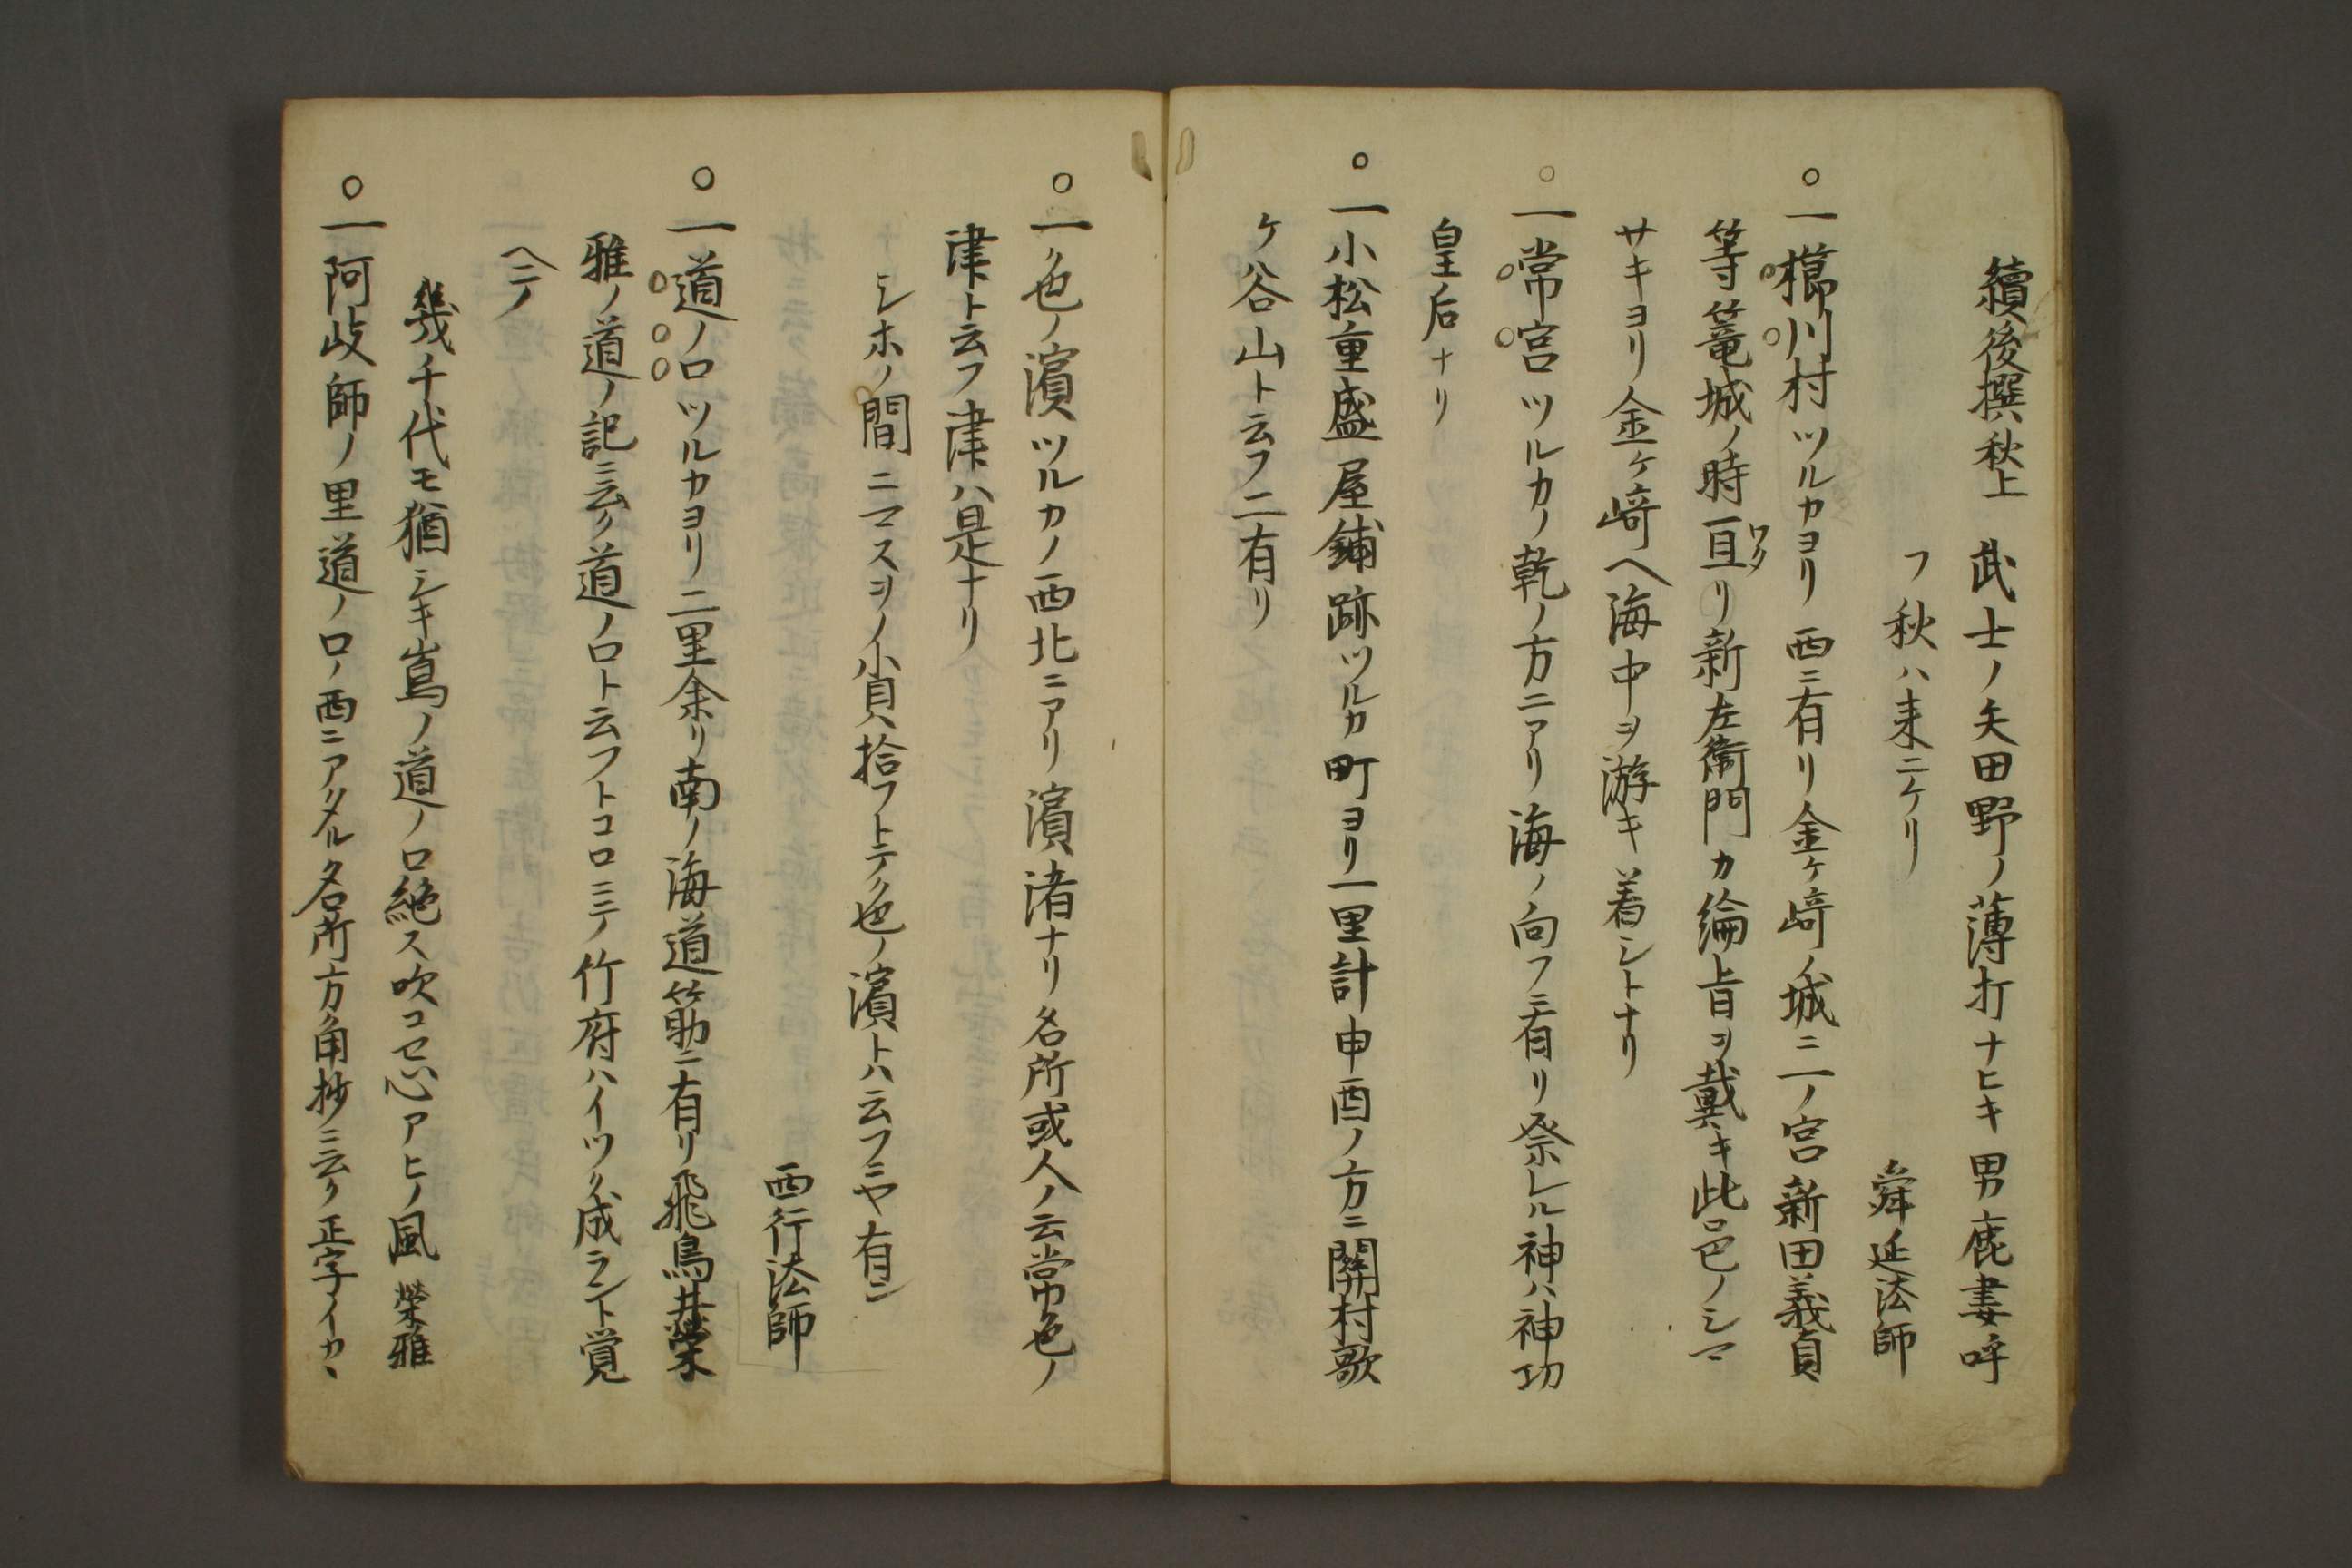 續後撰秋上　武士ノ矢田野ノ薄打ナヒキ男鹿妻呼
フ秋ハ来ニケリ
舜延法師
一櫛川村ツルカヨリ西ニ有リ金ケ﨑ノ城ニ一ノ宮新田義貞
等篭城ノ時亘リ新左衛門カ綸旨ヲ戴キ此邑ノシマ
ワタ
サキヨリ金ケ﨑ヘ海中ヲ游キ着シトナリ
一常宮ツルカノ乾ノ方ニアリ海ノ向フニ有リ祭レル神ハ神功
皇后ナリ
一小松重盛屋鋪跡ツルカ町ヨリ一里計申酉ノ方ニ関村歌
ケ谷山ト云フニ有リ
一色ノ濱ツルカノ西北ニアリ濱渚ナリ名所或人ノ云常色ノ
津ト云フ津ハ是ナリ
シホノ間ニマスヲノ小貝拾フトテ色ノ濱トハ云フニヤ有ン
西行法師
一道ノ口ツルカヨリ二里余リ南ノ海道筋ニ有リ飛鳥井榮
雅ノ道ノ記ニ云ク道ノ口ト云フトコロニテ竹府ハイツク成ラント覚
ヘテ
幾千代モ猶シキ嶌ノ道ノ口絶ス吹コセ心アヒノ風　榮雅
一阿岐師ノ里道ノ口ノ西ニアタル名所方角抄ニ云ク正字イカヽ